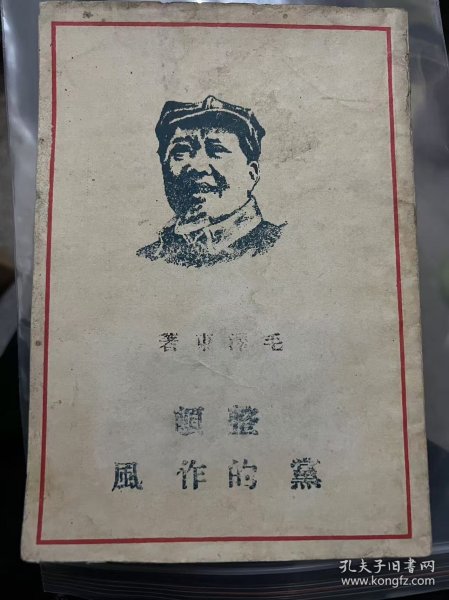 毛澤東著
整頓
黨的作風
孔夫子旧書网
www.kongfz.com